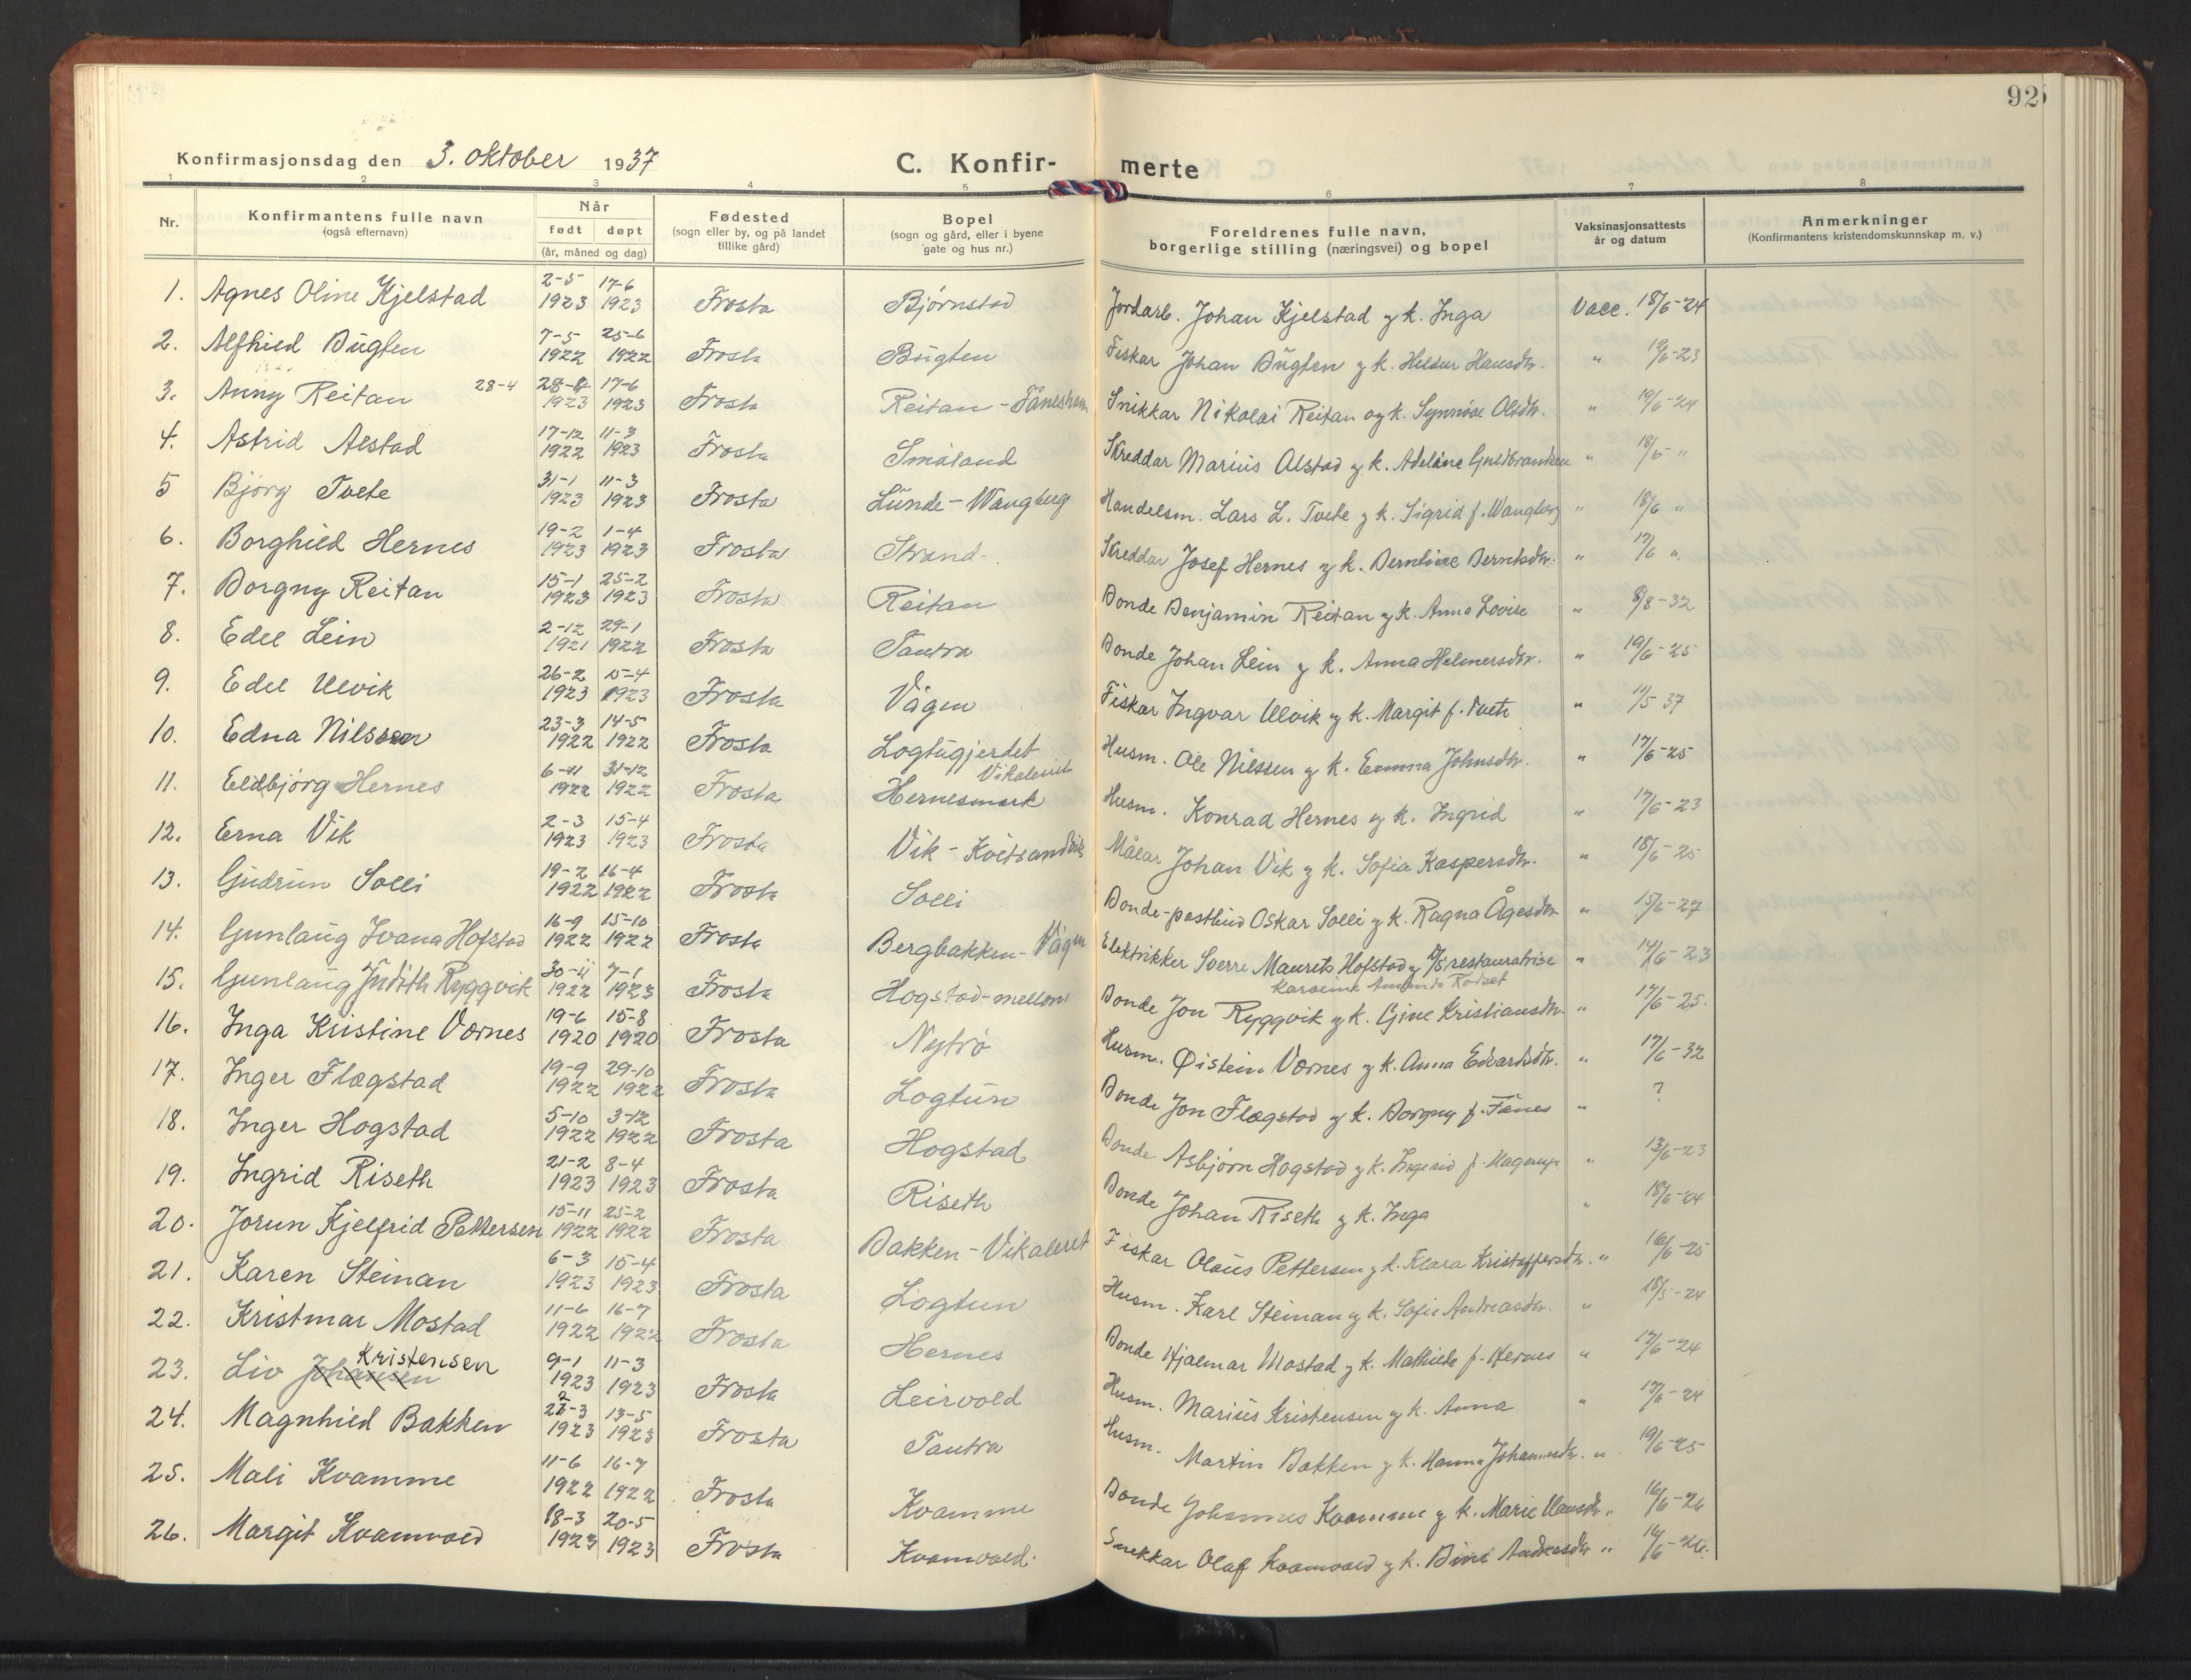 92
Konfirmasjonsdag den 3. oktober 1937
C. Konfir- merte
1 2 3 4 5 6 7 8
Nr. Konfirmantens fulle navn (også efternavn) Når født døpt (år, måned og dag) Fødested (sogn eller by, og på landet tillike gård) Bopel (sogn og gård, eller i byene gate og hus nr.) Foreldrenes fulle navn, borgerlige stilling (næringsvei) og bopel Vaksinasjonsattests år og datum Anmerkninger (Konfirmantens kristendomskunnskap m. v.)
1. Agnes Oline Kjelstad 2-5 1923 17-6 1923 Frosta Bjørnstad Jordarb. Johan Kjelstad og k. Inga Vacc. 18/6-24
2. Alfhild Bugten 7-5 1922 25-6 1922 Frosta Bugten Fiskar Johan Bugten og k. Hansdtr. "
3. Anny Reitan 28-4 28-4 1923 17-6 1923 Frosta Reitan - Fånesheim Snikkar Nikolai Reitan og k. Synnöve Olsdtr. " 19/6-24
4. Astrid Alstad 17-12 1922 11-3 1923 Frosta Småland Skreddar Marius Alstad og k. Adeline Guldbrandsen " 18/5 "
5 Bjørg Tvete 31-1 1923 11-3 1923 Frosta Lunde - Wangberg Handelsm. Lars L. Tvete og k. Sigrid f. Wangberg " 18/6 "
6. Borghild Hernes 19-2 1923 1-4 1923 Frosta Strand Skreddar Josef Hernes og k. Berntine Berntsdtr. " 17/6 "
7. Borgny Reitan 15-1 1923 25-2 1923 Frosta Reitan Bonde Benjamin Reitan og k. Anna Lovise " 8/8-32
8. Edel Lein 2-12 1921 29-1 1922 Frosta Tautra Bonde Johan Lein og k. Anna Helmersdtr. " 19/6-25
9. Edel Ulvik 26-2 1923 15-4 1923 Frosta Vågen Fiskar Ingvar Ulvik og k. Margit f. Tvete " 11/5 37
10. Edna Nilssen 23-3 1922 14-5 1922 Frosta Logtugjerdet Husm. Ole Nilssen og k. Emma Johnsdtr. " 17/6-25
11. Eldbjørg Hernes 6-11 1922 31-12 1922 Frosta Vikaleiret Hernesmark Husm. Konrad Hernes og k. Ingrid " 17/6-23
12. Erna Vik 2-3 1923 15-4 1923 Frosta Vik - Kvitsandvik Målar Johan Vik og k. Sofia Kaspersdtr. " 18/6-25
13. Gudrun Solli 19-2 1922 16-4 1922 Frosta Solli Bonde-postbud Oskar Solli og k. Ragna Ågesdtr. " 15/6-27
14. Gunlaug Ivana Hofstad 16-9 1922 15-10 1922 Frosta Bergbakken - Vågen Elektrikker Sverre Maurits Hofstad og restauratrise " 14/6-23
15. Gunlaug Judith Ryggvik 30-11 1922 7-1 1923 Frosta Hogstad-mellom Bonde Jon Ryggvik og k. Gine Kristiansdtr. " 17/6-25.
16. Inga Kristine Værnes 19-6 1920 15-8 1920 Frosta Nytrø Husm. Øistein Værnes og k. Anna Edvardsdtr. " 17/6-32
17. Inger Flægstad 19-9 1922 29-10 1922 Frosta Logtun Bonde Jon Flægstad og k. Borgny f. Fånes " ?
18. Inger Hogstad 5-10 1922 3-12 1922 Frosta Hogstad Bonde Asbjørn Hogstad og k. Ingerid f. " 13/6-23
19. Ingrid Riseth 21-2 1923 8-4 1923 Frosta Riseth Bonde Johan Riseth og k. Inga " 18/6-24
20. Jorun Kjelfrid Pettersen 15-11 1922 25-2 1922 Frosta Bakken - Vikaleret Fiskar Olaus Pettersen og k. Klara Kristoffersdtr. " 16/6-25
21. Karen Steinan 6-3 1923 15-4 1923 Frosta Logtun Husm. Karl Steinan og k. Sofie Andreasdtr. " 18/5-24
22. Kristmar Mostad 11-6 1922 16-7 1922 Frosta Hernes Bonde Hjalmar Mostad og k. Mathilde f. Hernes " 17/6-24
23. Liv Johansen Kristensen 9-1 1923 11-3 1923 Frosta Leirvold Husm. Marius Kristensen og k. Anna " 17/6-24
24. Magnhild Bakken 22-3 1923 13-5 1923 Frosta Tautra Husm. Martin Bakken og k. Hanna Johannesdtr. " 19/6-25
25. Mali Kvamme 11-6 1922 16-7 1922 Frosta Kvamme Bonde Johannes Kvamme og k. Marie " 16/6-26
26. Margit Kvamvold 18-3 1923 20-5 1923 Frosta Kvamvold. Snekkar Olaf Kvamvold og k. Andreasdtr " 16/6-26.